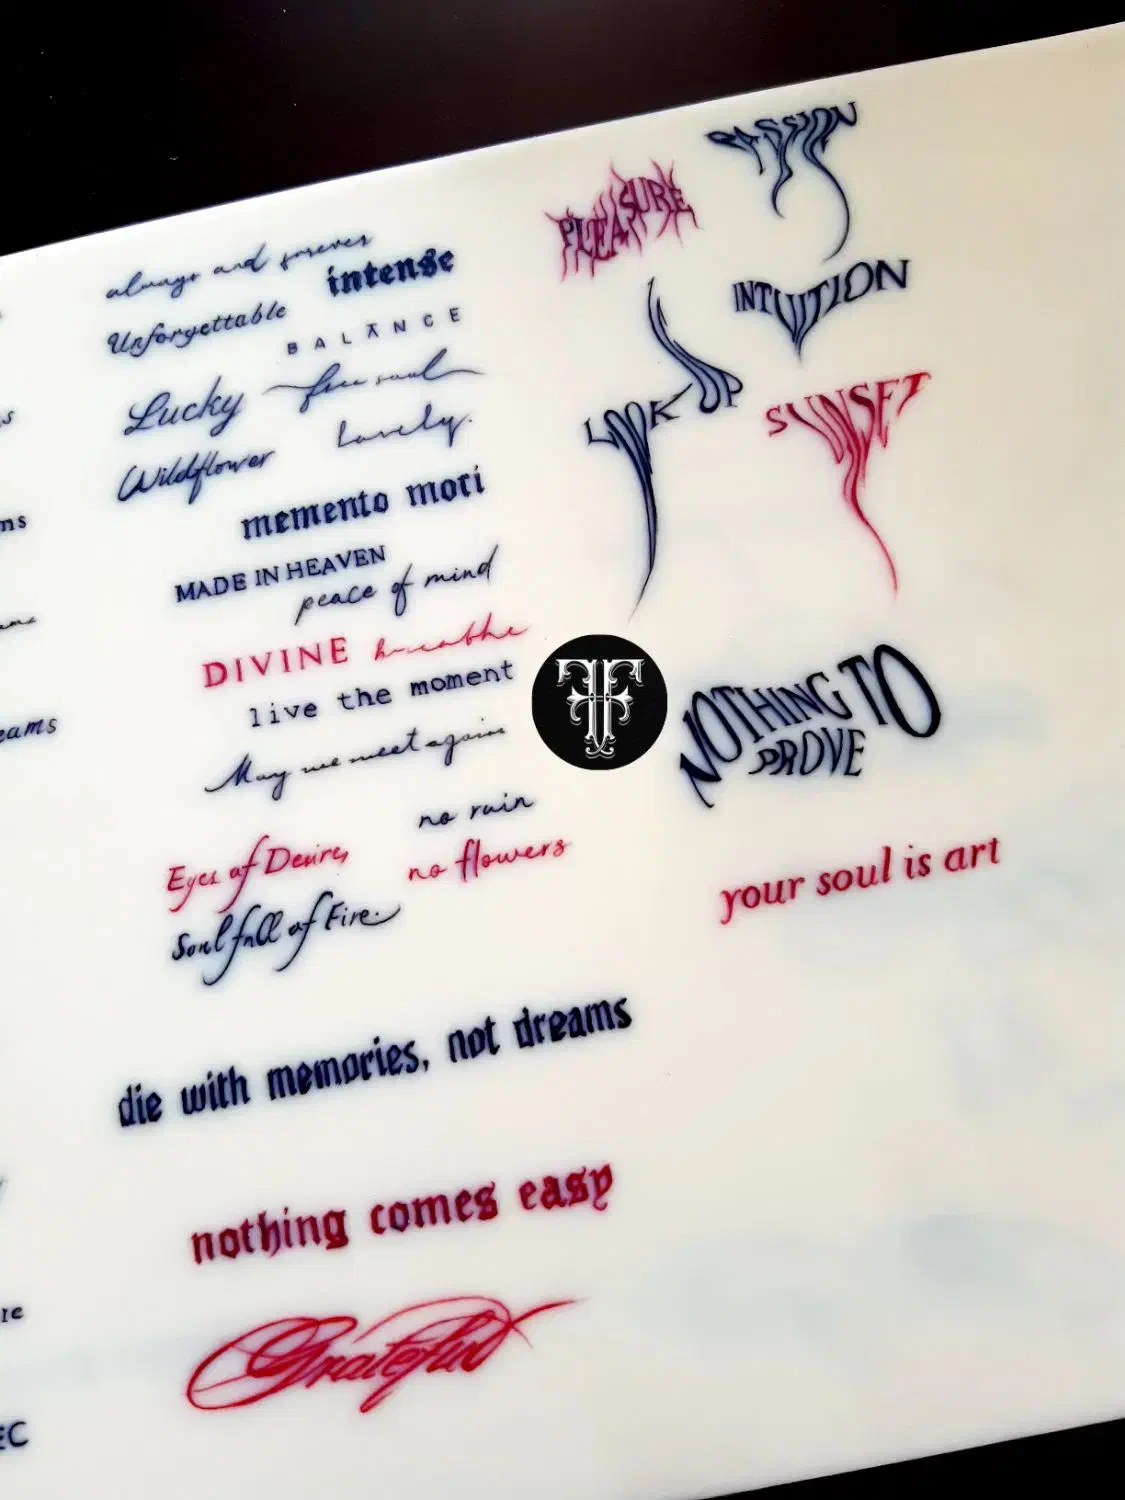 always and forever
intense
Unforgettable
BALANCE
Lucky
free soul
Wildflower
Lovely.
memento mori
MADE IN HEAVEN
peace of mind
DIVINE
breathe
live the moment
May we meet again
no rain
no flowers
Eyes of Desire,
Soul full of Fire.
die with memories, not dreams
nothing comes easy
Grateful
PASSION
PLEASURE
INTUITION
LOOK UP
SUNSET
NOTHING TO
PROVE
your soul is art